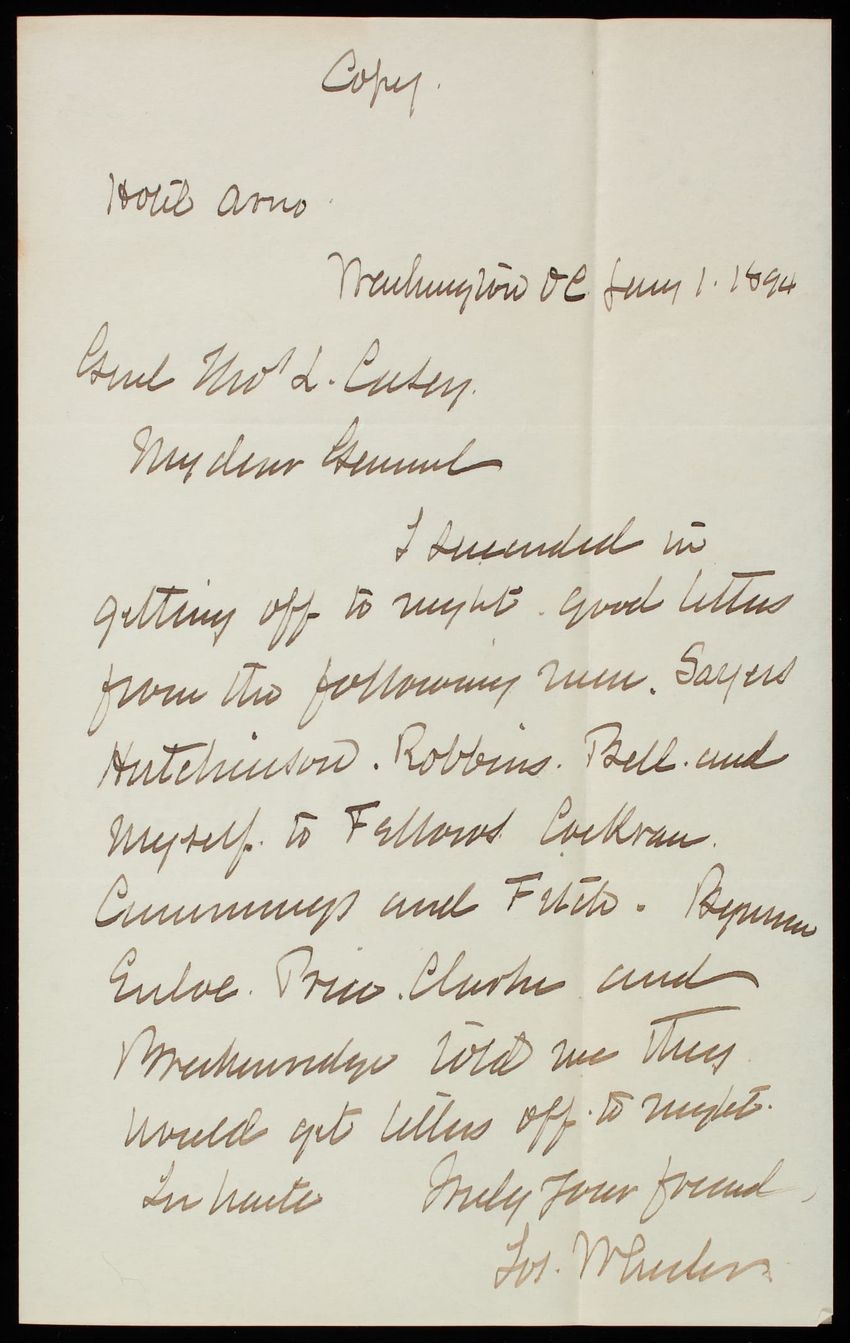 Copy.
Hotel Arno
Washington DC Jany 1. 1894
Genl Thos L. Casey.
My dear General
I succeeded in
getting off to night good letters
from the following men. Sayers
Hutchinson. Robbins. Bell. and
Myself. to Fellows Cockran.
Cummings and Fitch. Bynum
Enloe. Price. Clarke and
Breckenridge told me they
would get letters off to night.
In haste Truly your friend,
Jos. Wheeler